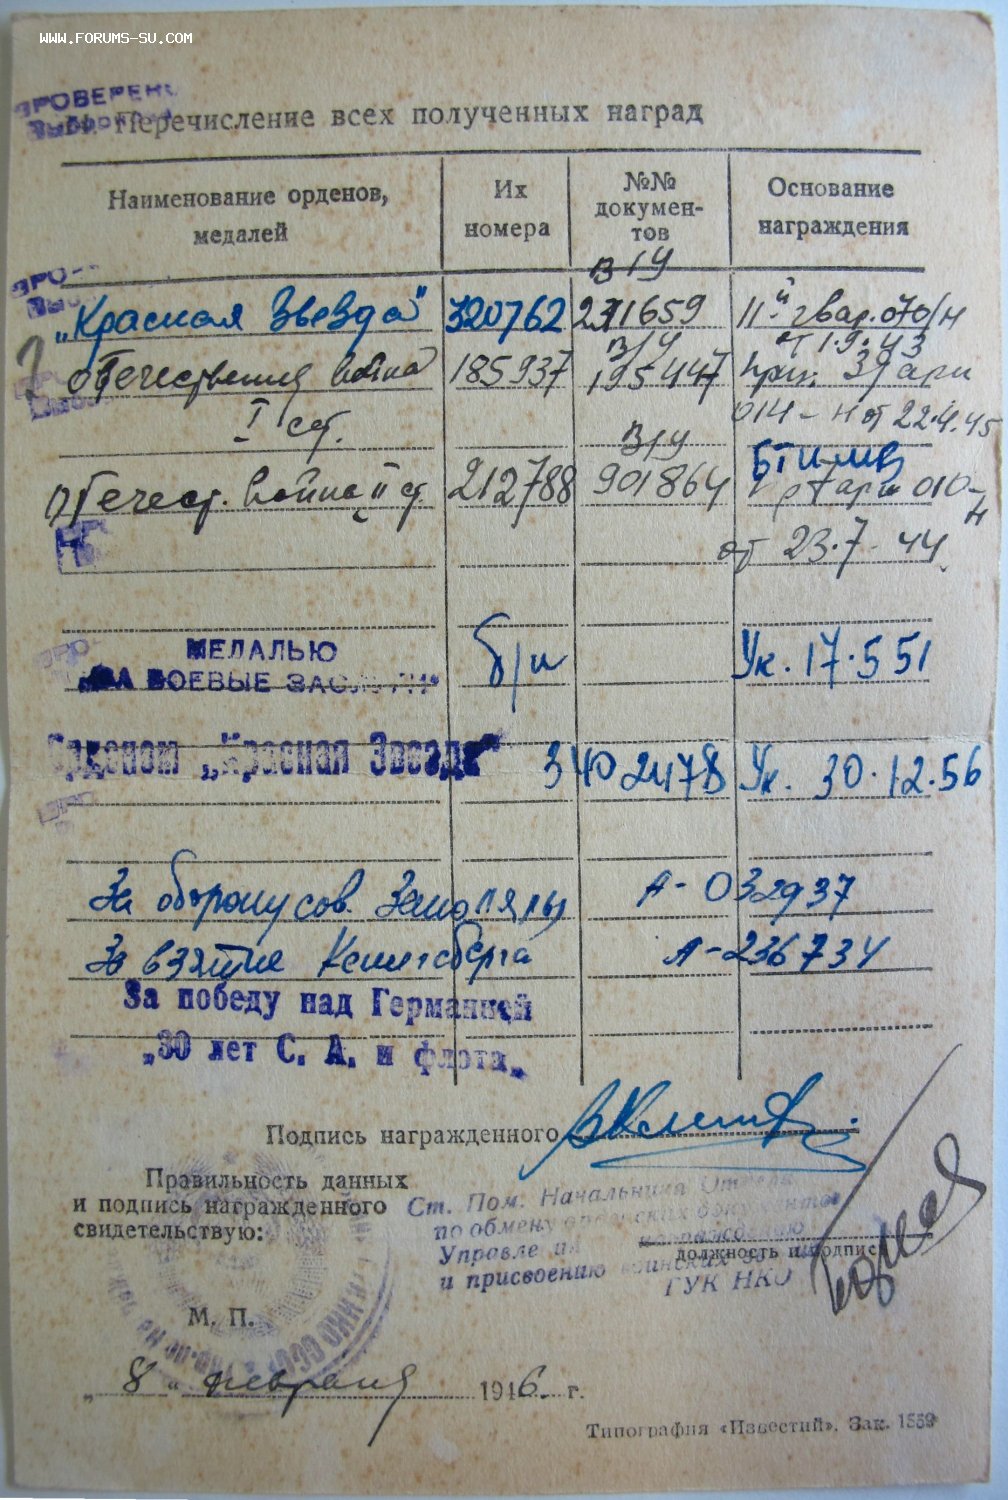 WWW.FORUMS-SU.COM
ПРОВЕРЕНО
Перечисление всех полученных наград
Наименование орденов, медалей
Их номера
№№ документов
Основание награждения
в/у
„Красная Звезда" 320762 271659 11й гвар. 070/н
от 1.9.43
в/у
Отечественная война 185937 195447 Прик. 39 арм
I ст. 014-н от 22.4.45
в/у
БТ и МВ
Отечест. война II ст. 212788 901864 арм 010-н
от 23.7.44
МЕДАЛЬЮ
«ЗА БОЕВЫЕ ЗАСЛУГИ» б/н Ук. 17.5 51
Орденом „Красная Звезда" 3402478 Ук. 30.12.56
За оборону сов. Заполярья А-032937
За взятие Кенигсберга А-236734
За победу над Германией
„30 лет С. А. и флота„
Подпись награжденного
Правильность данных
и подпись награжденного
свидетельствую:
Ст. Пом. Начальника Отдела
по обмену орденских документов
Управления награждению
и присвоению воинских
ГУК НКО
должность и подпись
М. П.
„ 8 " февраля 1946 г.
Типография «Известий». Зак. 1559